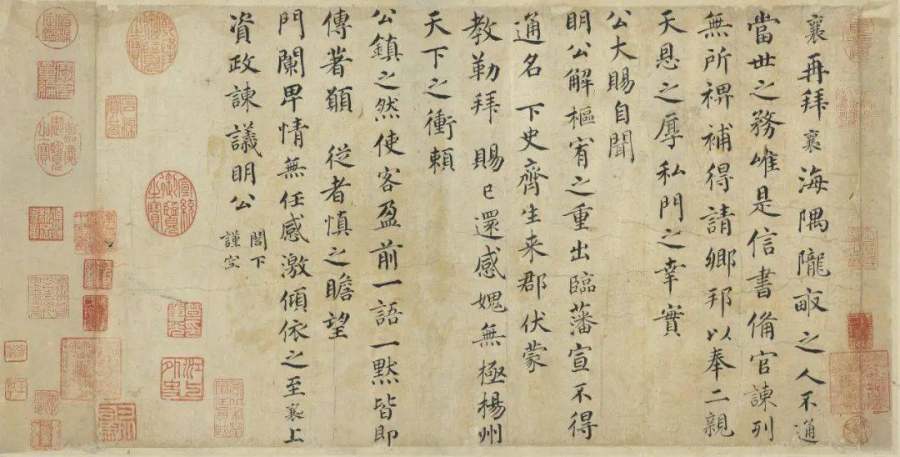 襄再拜襄海隅隴畝之人不通
當世之務唯是信書備官諫列
無所裨補得請鄉邦以奉二親
天恩之厚私門之幸實
公大賜自聞
明公解樞宥之重出臨藩宣不得
通名下史齊生来郡伏蒙
教勒拜賜已還感媿無極楊州
天下之衝賴
公鎮之然使客盈前一語一默皆即
傳著願從者慎之瞻望
門闌卑情無任感激傾依之至襄上
資政諫議明公
閤下
謹空